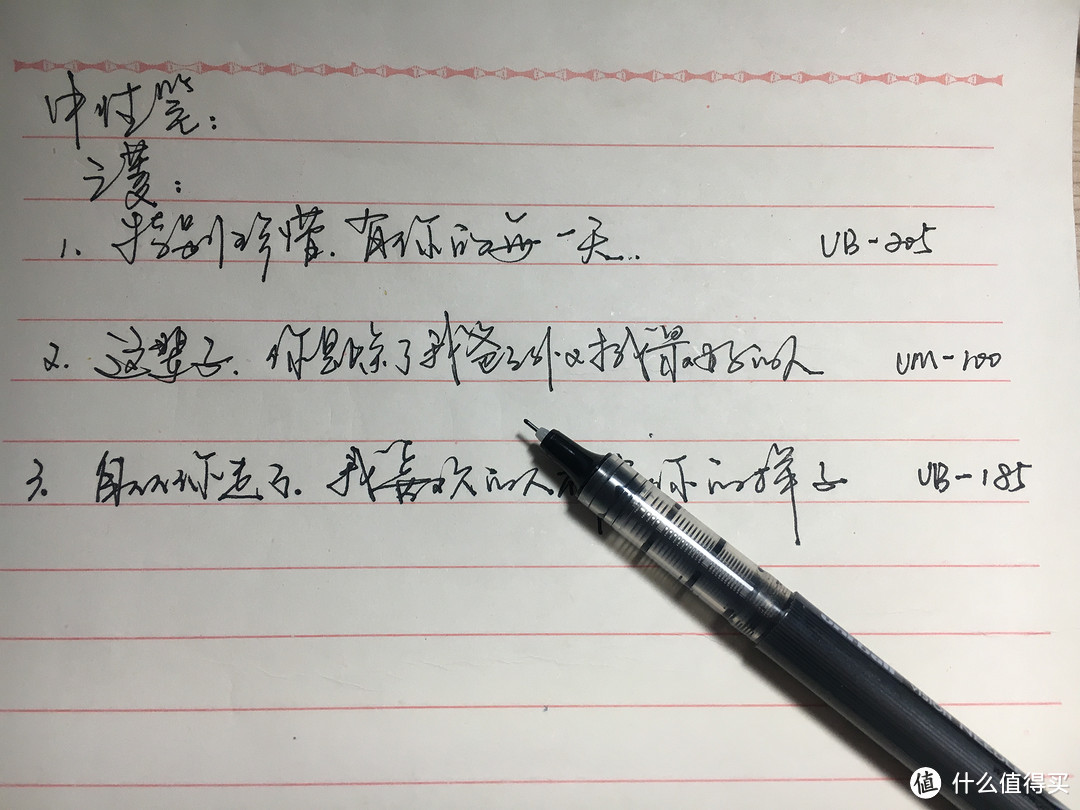 中性笔:
三菱:
1. 特别珍惜. 有你的每一天.. UB-205
2. 这辈子. 你是除了我爸之外又对我最好的人 UM-100
3. 自从你走了. 我喜欢的人 你的样子 UB-185
值 什么值得买